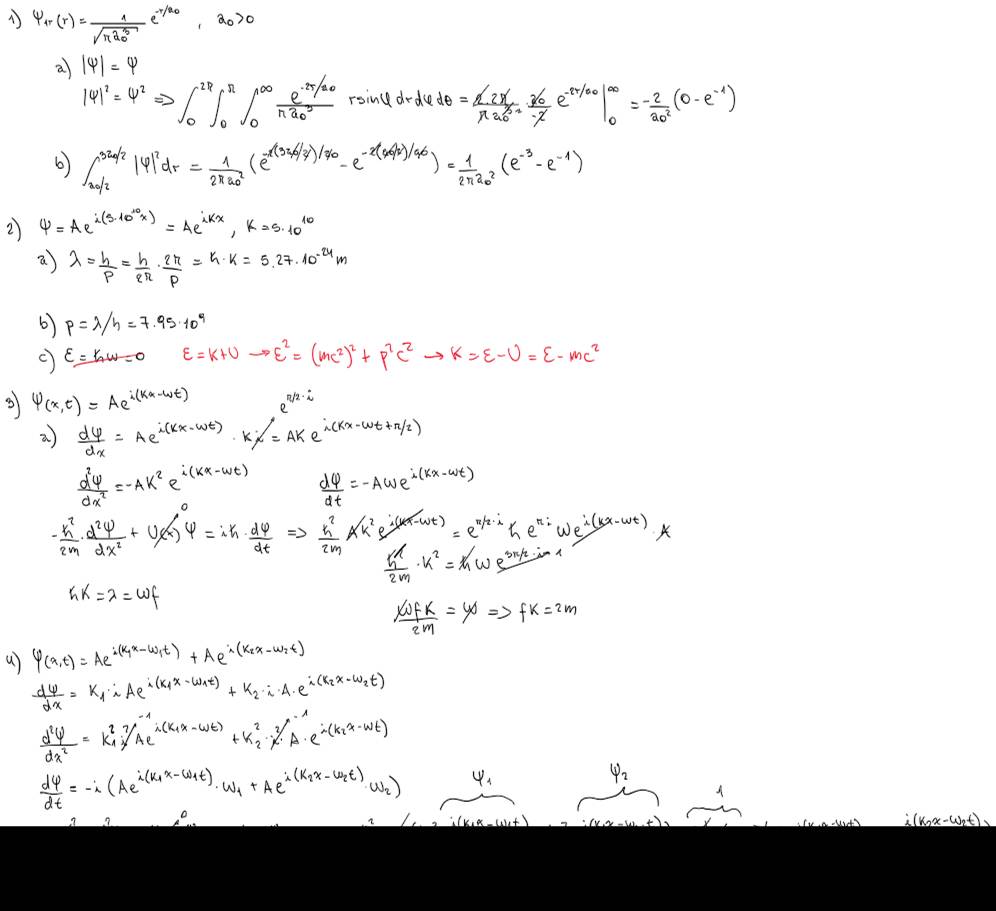 1) Ψ₁ᵣ(r) = 1/√(πa₀³) e^(-r/a₀) , a₀>0
a) |Ψ| = Ψ
|Ψ|² = Ψ² => ∫₀^2π ∫₀^π ∫₀^∞ e^(-2r/a₀)/(πa₀³) r sinφ dr dφ dθ = 2·2π/(πa₀³ ²) · a₀/-2 e^(-2r/a₀) |₀^∞ = -2/a₀² (0 - e^(-1))
b) ∫_(a₀/2)^(3a₀/2) |Ψ|² dr = 1/(2πa₀²) (e^(-2(3a₀/2)/a₀) - e^(-2(a₀/2)/a₀)) = 1/(2πa₀²) (e^(-3) - e^(-1))
2) Ψ = Ae^(i(5·10¹⁰x)) = Ae^(iKx) , K = 5·10¹⁰
a) λ = h/p = h/2π · 2π/p = ħ·K = 5,27·10⁻²⁴ m
b) p = λ/h = 7.95·10⁹
c) E = ħω = 0 E = K+U → E² = (mc²)² + p²c² → K = E-U = E - mc²
3) Ψ(x,t) = Ae^(i(Kx-ωt))
e^(π/2·i)
a) dΨ/dx = Ae^(i(Kx-ωt)) · Ki = AK e^(i(Kx-ωt+π/2))
d²Ψ/dx² = -AK² e^(i(Kx-ωt)) dΨ/dt = -Aωe^(i(Kx-ωt))
-ħ²/2m · d²Ψ/dx² + U(x) 0 Ψ = iħ · dΨ/dt => ħ²/2m AK² e^(i(Kx-ωt)) = e^(π/2·i) ħ e^(πi) ωe^(i(Kx-ωt)) · A
ħ²/2m · K² = ħω e^(3π/2·i) 1
ħK = λ = ωf
ωfK/2m = ω => fK = 2m
4) Ψ(x,t) = Ae^(i(K₁x-ω₁t)) + Ae^(i(K₂x-ω₂t))
dΨ/dx = K₁·i Ae^(i(K₁x-ω₁t)) + K₂·i·A·e^(i(K₂x-ω₂t))
d²Ψ/dx² = K₁² i² -1 Ae^(i(K₁x-ωt)) + K₂²·i² -1 ·A·e^(i(K₂x-ωt))
dΨ/dt = -i (Ae^(i(K₁x-ω₁t))·ω₁ + Ae^(i(K₂x-ω₂t))·ω₂) Ψ₁ Ψ₂ 1
i(K₂x-ω₂t)